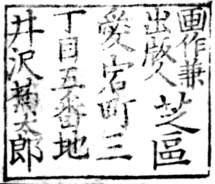 画作兼
出版人 芝區
愛宕町三
丁目五番地
井沢菊太郎